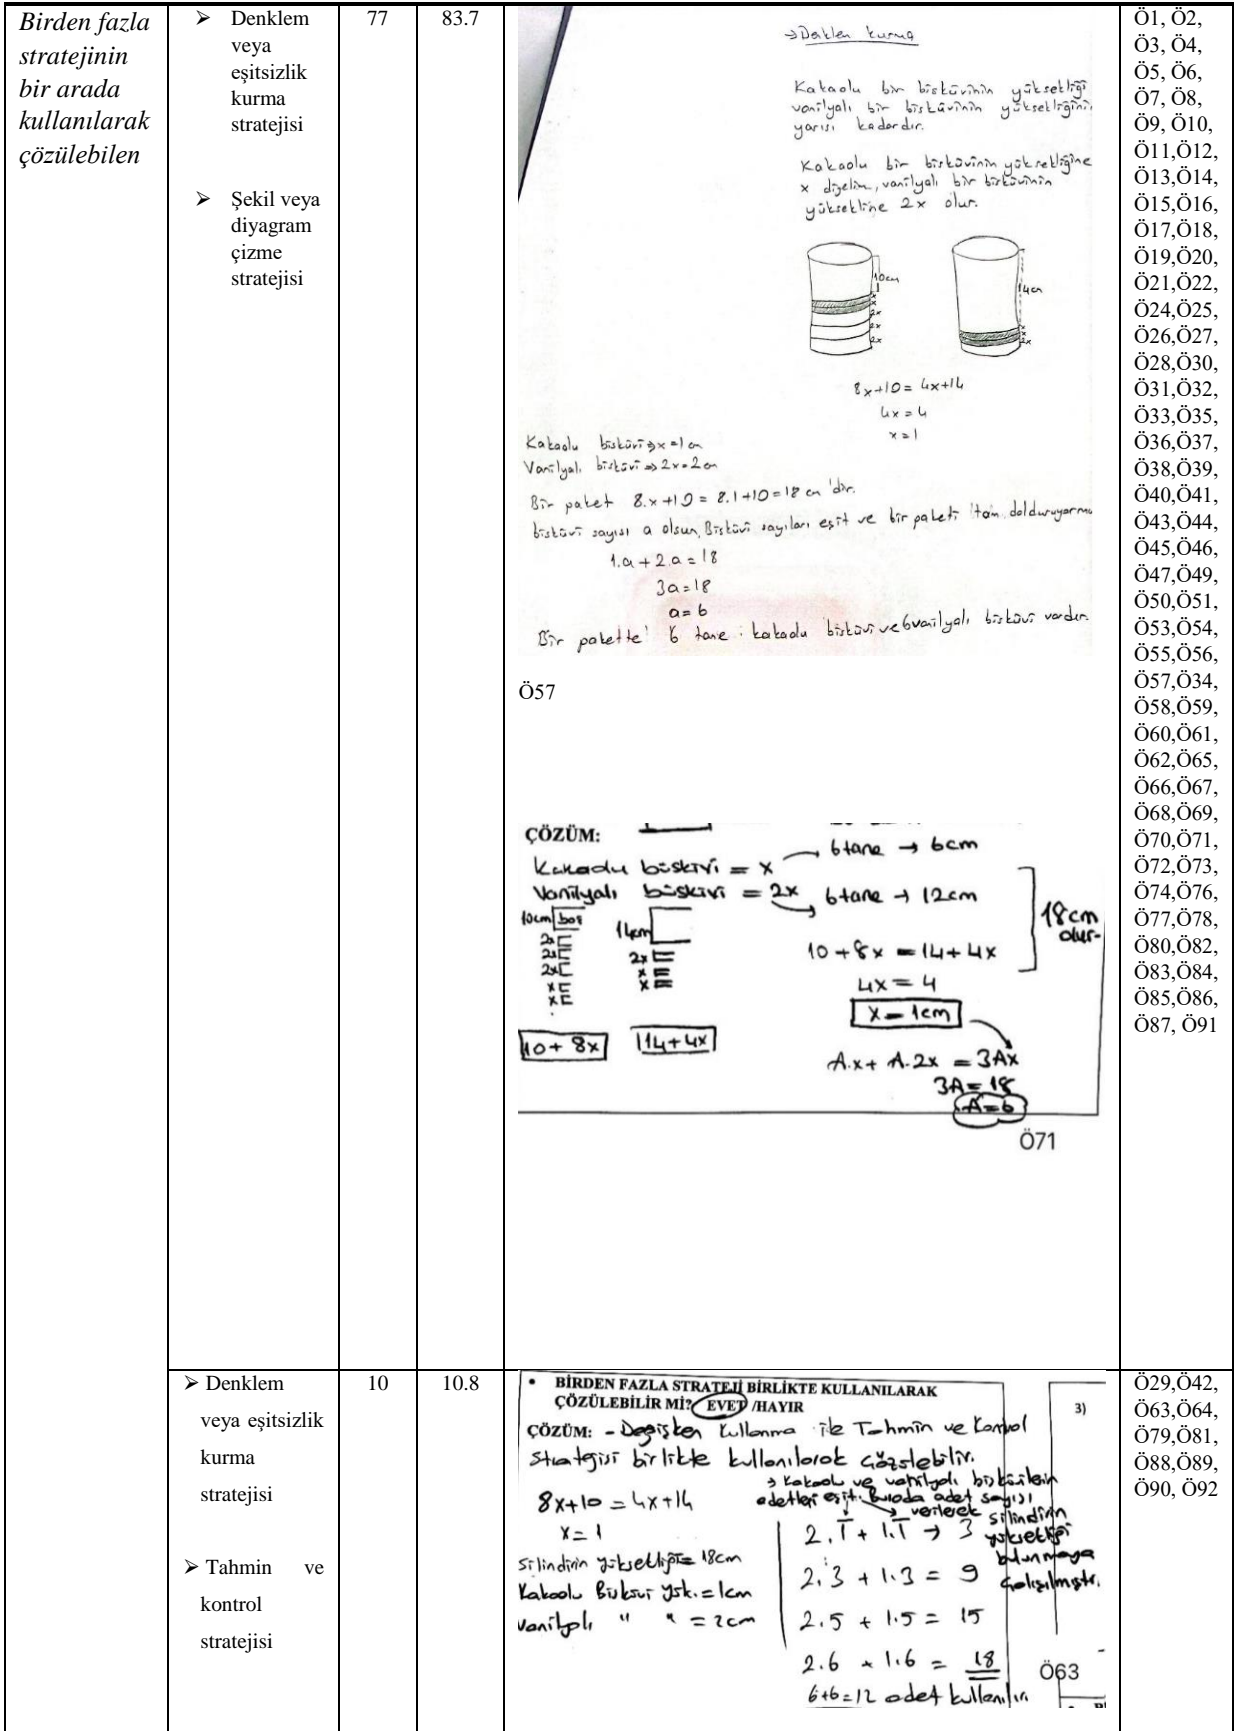 Birden fazla
stratejinin
bir arada
kullanılarak
çözülebilen
➢ Denklem
veya
eşitsizlik
kurma
stratejisi
➢ Şekil veya
diyagram
çizme
stratejisi
77
83.7
Kakaolu bir bisküvinin yüksekliği
vanilyalı bir bisküvinin yüksekliğinin
yarısı kadardır.
Kakaolu bir bisküvinin yüksekliğine
x diyelim, vanilyalı bir bisküvinin
yüksekliğine 2x olur.
10cm
x
x
2x
2x
2x
14cm
x
x
2x
8x+10 = 4x+14
4x = 4
x = 1
Kakaolu bisküvi ⇒ x=1 cm
Vanilyalı bisküvi ⇒ 2x=2 cm
Bir paket 8.x+10 = 8.1+10=18 cm'dir.
bisküvi sayısı a olsun, Bisküvi sayıları eşit ve bir paketi tam dolduruyorma
1.a + 2.a = 18
3a=18
a=6
Bir pakette 6 tane kakaolu bisküvi ve 6 vanilyalı bisküvi vardır.
Ö57
ÇÖZÜM:
Kakaolu büskivi = x → 6 tane → 6cm
Vanilyalı büskivi = 2x → 6 tane → 12cm
18cm
olur.
10cm boş
2x
2x
2x
x
x
14cm
2x
x
x
10 + 8x = 14 + 4x
4x = 4
x = 1cm
10 + 8x
14 + 4x
A.x + A.2x = 3Ax
3A = 18
A = 6
Ö71
Ö1, Ö2,
Ö3, Ö4,
Ö5, Ö6,
Ö7, Ö8,
Ö9, Ö10,
Ö11,Ö12,
Ö13,Ö14,
Ö15,Ö16,
Ö17,Ö18,
Ö19,Ö20,
Ö21,Ö22,
Ö24,Ö25,
Ö26,Ö27,
Ö28,Ö30,
Ö31,Ö32,
Ö33,Ö35,
Ö36,Ö37,
Ö38,Ö39,
Ö40,Ö41,
Ö43,Ö44,
Ö45,Ö46,
Ö47,Ö49,
Ö50,Ö51,
Ö53,Ö54,
Ö55,Ö56,
Ö57,Ö34,
Ö58,Ö59,
Ö60,Ö61,
Ö62,Ö65,
Ö66,Ö67,
Ö68,Ö69,
Ö70,Ö71,
Ö72,Ö73,
Ö74,Ö76,
Ö77,Ö78,
Ö80,Ö82,
Ö83,Ö84,
Ö85,Ö86,
Ö87, Ö91
➢ Denklem
veya eşitsizlik
kurma
stratejisi
➢ Tahmin ve
kontrol
stratejisi
10
10.8
• BİRDEN FAZLA STRATEJİ BİRLİKTE KULLANILARAK
ÇÖZÜLEBİLİR Mİ? EVET /HAYIR
ÇÖZÜM: - Değişken kullanma ile Tahmin ve Kontrol
stratejisi birlikte kullanılarak çözülebilir.
→ Kakaolu ve vanilyalı bisküvilerin
adetleri eşit. Burada adet sayısı
verilerek silindirin
yüksekliği
bulunmaya
çalışılmıştır.
8x+10 = 4x+14
x = 1
silindirin yüksekliği = 18cm
Kakaolu Bisküvi yük. = 1cm
vanilyalı " " = 2cm
2.1 + 1.1 → 3
2.3 + 1.3 = 9
2.5 + 1.5 = 15
2.6 + 1.6 = 18
6+6=12 adet kullanılır.
3)
Ö63
Ö29,Ö42,
Ö63,Ö64,
Ö79,Ö81,
Ö88,Ö89,
Ö90, Ö92